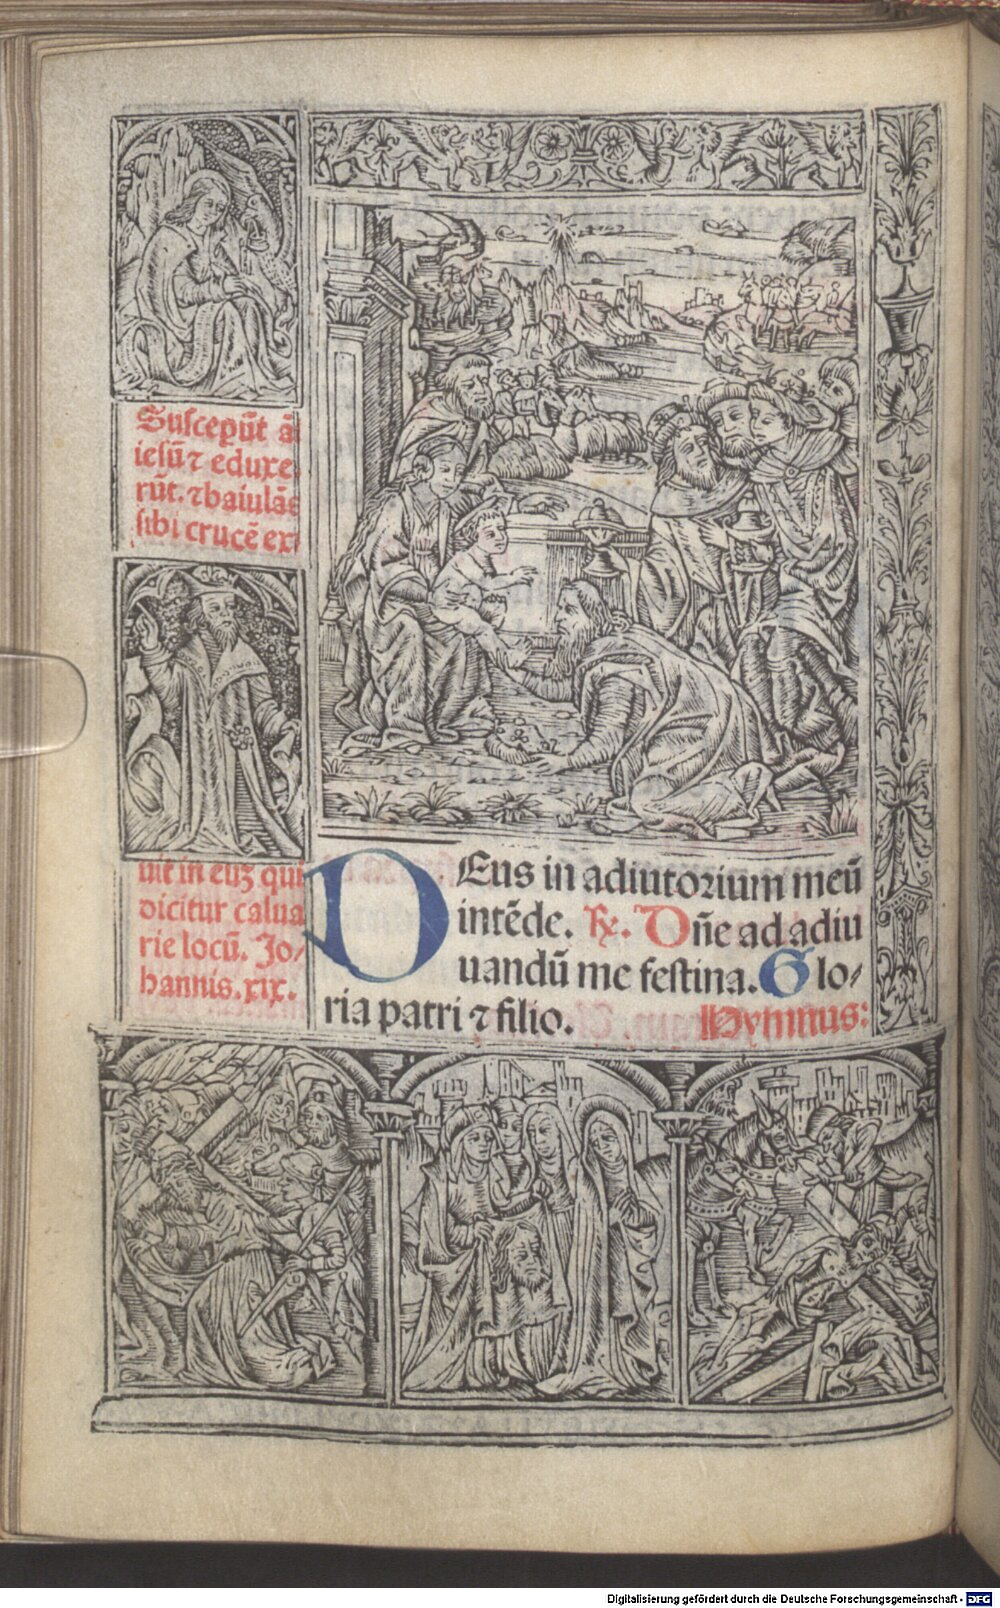 Suscepūt āt
iesū ⁊ eduxe-
rūt. ⁊ baiulās
sibi crucē exi
uit in euꝫ qui
dicitur calua
rie locū. Jo/
hannis. xix.
DEus in adiutorium meū
intēde. ℟. Dn̄e ad adiu
uandū me festina. Glo/
ria patri ⁊ filio. Hymnus:
Digitalisierung gefördert durch die Deutsche Forschungsgemeinschaft - DFG